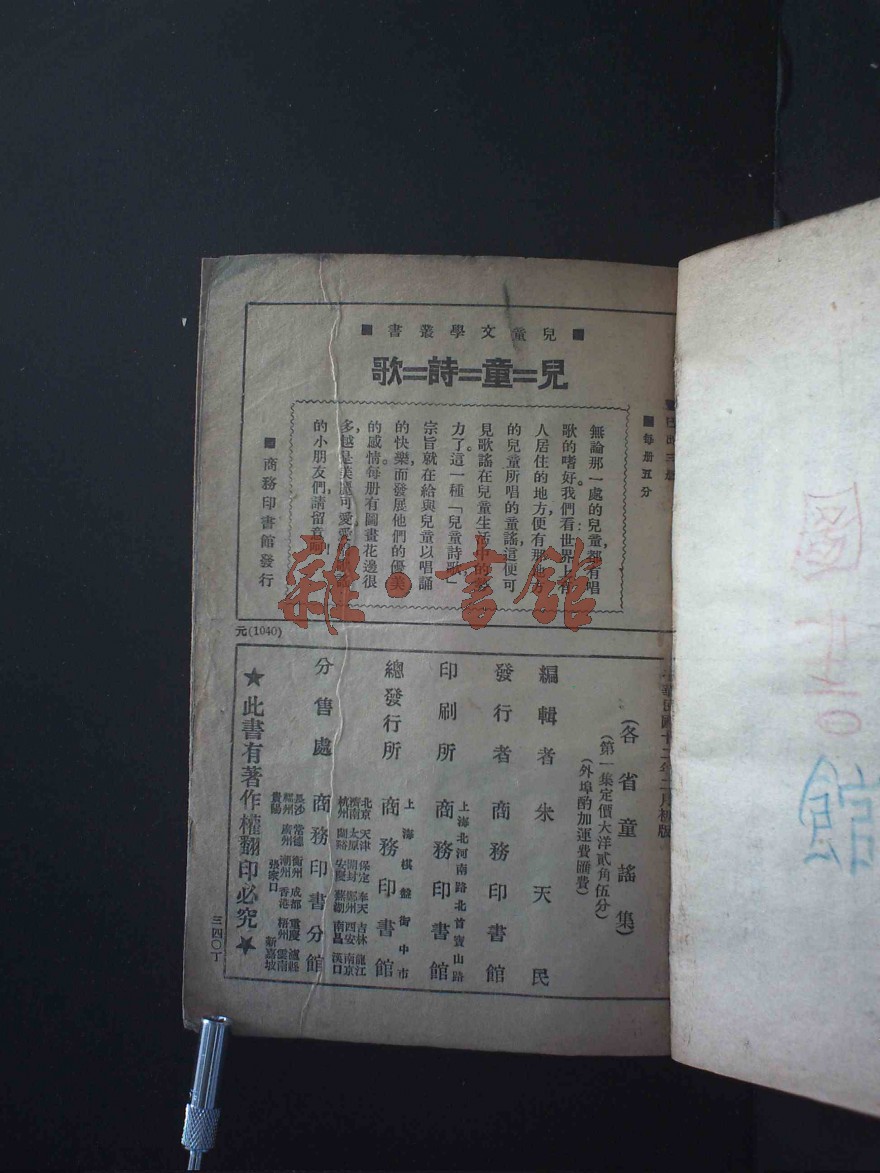 ■兒童文學叢書■
兒=童=詩=歌
■每冊五分
無論那一處的兒童,都有唱
歌的嗜好。我們看世界上有
人居住的地方,便有那地方
的兒童所唱的童謠,這便可
見歌謠在兒童生活中的勢
力了。這一種「兒童詩歌」
宗旨就在給與兒童以唱誦
的快樂,而發展他們的優美
的感情。每册有圖畫花邊很
多,越是美麗可愛,愛
的小朋友們,請留意
■商務印書館發行
元(1040)
華民國十二年二月初版
(各省童謠集)
(第一集定價大洋貳角伍分)
(外埠酌加運費匯費)
編輯者 朱天民
發行者 商務印書館
上海北河南路北首寶山路
印刷所 商務印書館
上海棋盤街中市
總發行所 商務印書館
北京 天津 保定 奉天 吉林 龍江
濟南 太原 開封 鄭州 西安 南京
杭州 蘭谿 安慶 蕪湖 南昌 漢口
分售處 商務印書分館
長沙 常德 衡州 成都 重慶 瀘縣
福州 廣州 潮州 香港 梧州 雲南
貴陽 張家口 新嘉坡
★此書有著作權翻印必究★
三四〇丁
雜·書館
國
館